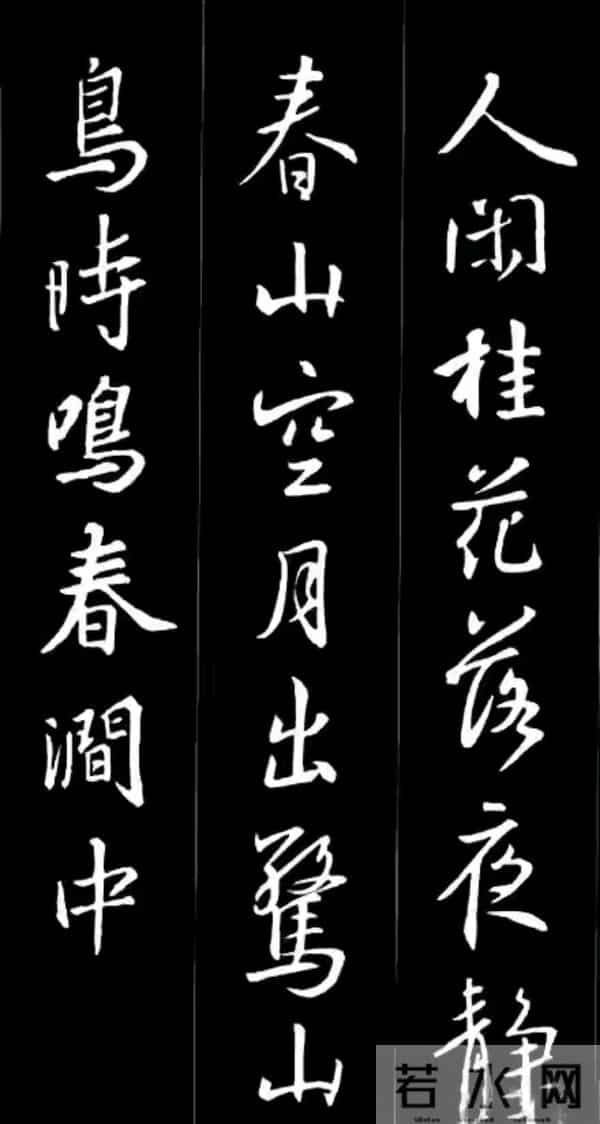 人闲桂花落夜静
春山空月出驚山
鳥時鳴春澗中
若水网